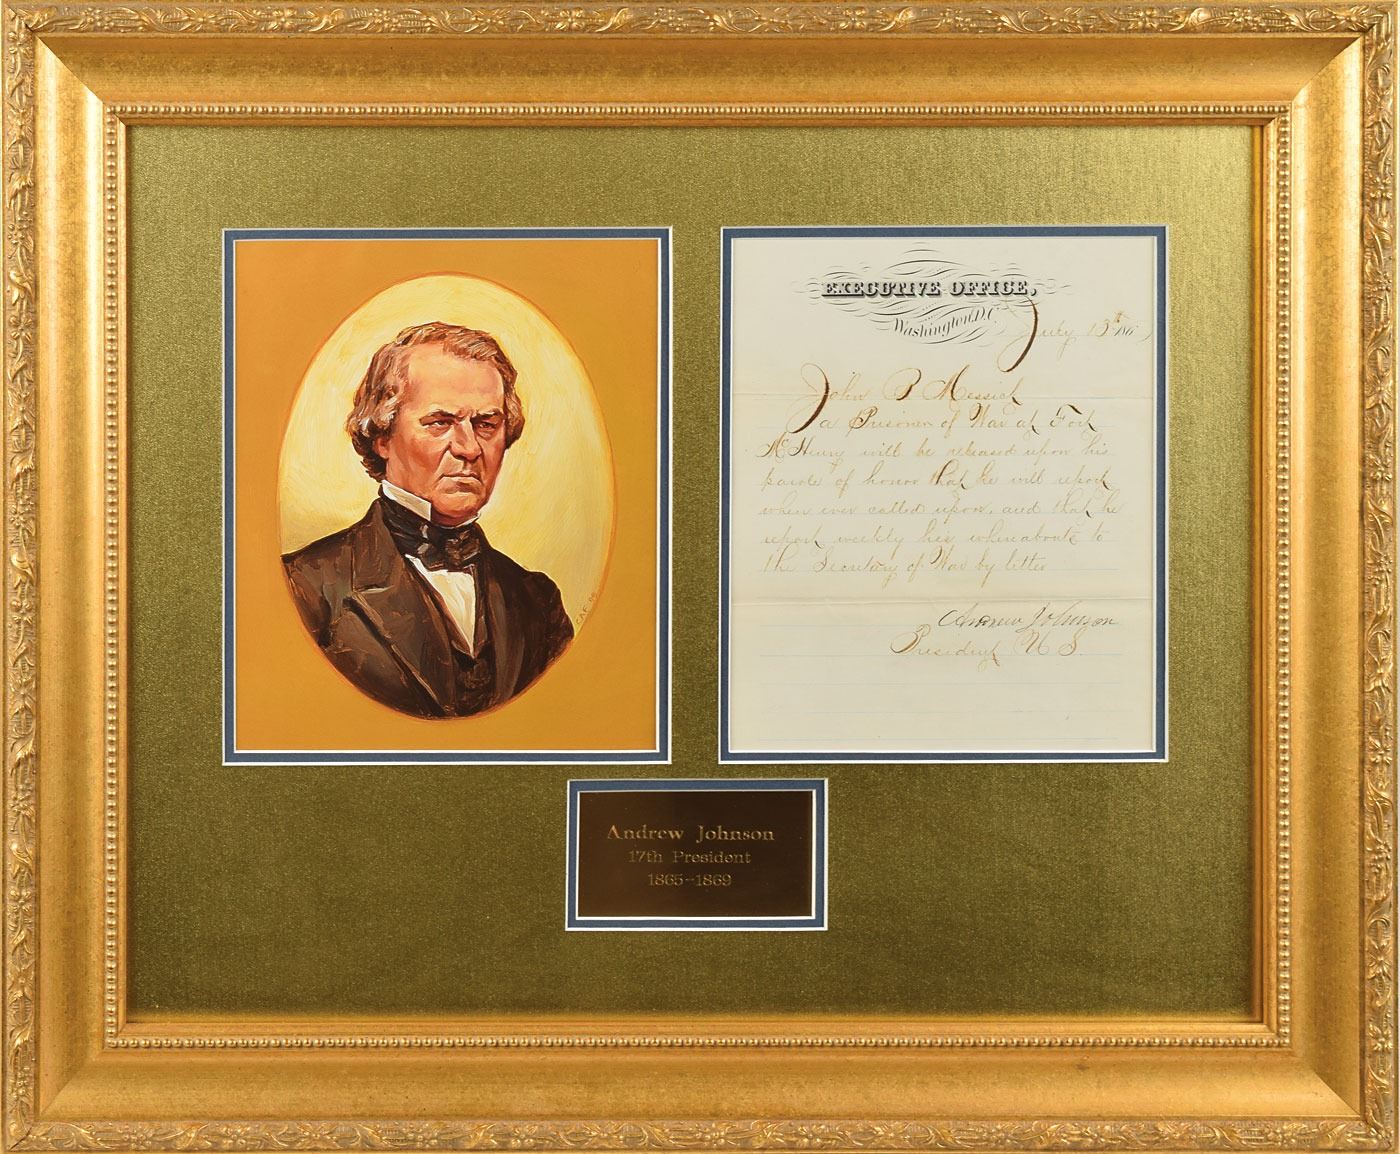 EXECUTIVE OFFICE,
Washington, D.C.
July 13th 186
John P Messick
a Prisoner of War at Fort
McHenry will be released upon his
parole of honor that he will report
when ever called upon, and that he
report weekly his whereabouts to
the Secretary of War by letter
Andrew Johnson
President U S.
CAF
Andrew Johnson
17th President
1865-1869